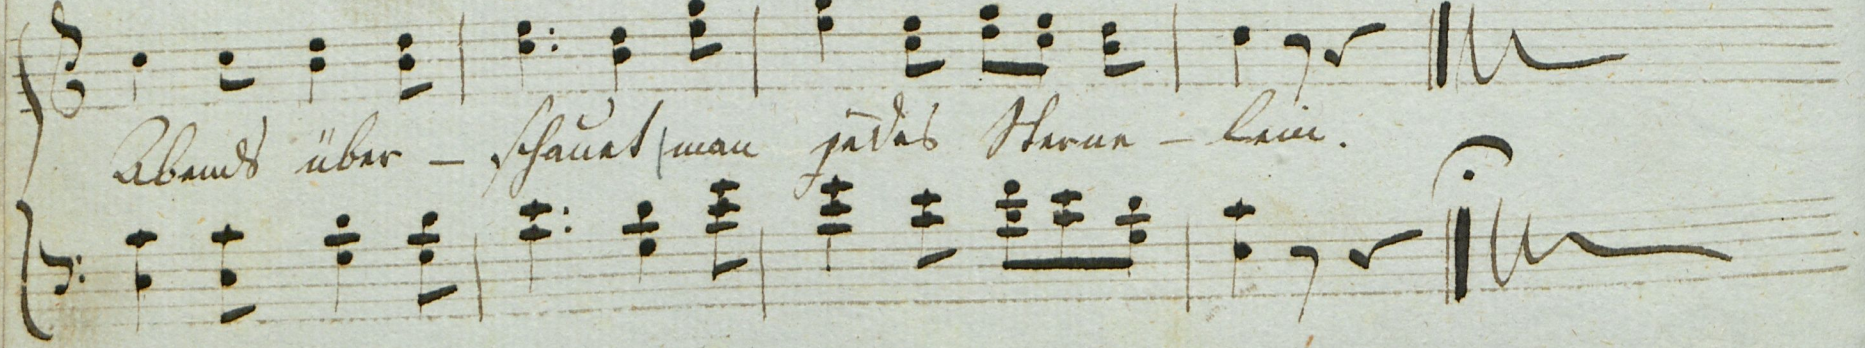 Abends über - schauet man jedes Sterne - lein.